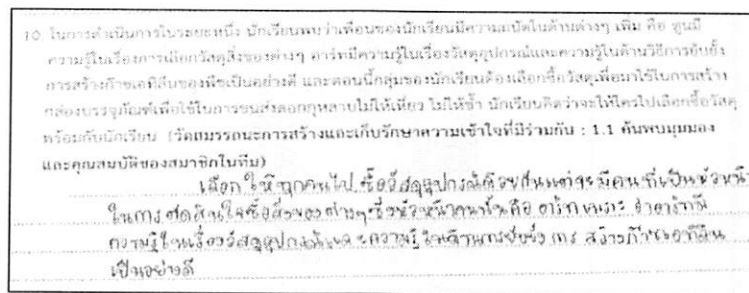 10. ในการดำเนินการในระยะหนึ่ง นักเรียนพบว่าเพื่อนของนักเรียนมีความถนัดในด้านต่างๆ เพิ่ม คือ ตูนมี
ความรู้ในเรื่องการเลือกวัสดุสิ่งของต่างๆ อาร์ทมีความรู้ในเรื่องวัสดุอุปกรณ์และความรู้ในด้านวิธีการยับยั้ง
การสร้างก๊าซเอทิลีนของพืชเป็นอย่างดี และตอนนี้กลุ่มของนักเรียนต้องเลือกซื้อวัสดุเพื่อมาใช้ในการสร้าง
กล่องบรรจุภัณฑ์เพื่อใช้ในการขนส่งดอกกุหลาบไม่ให้เหี่ยว ไม่ให้ช้ำ นักเรียนคิดว่าจะให้ใครไปเลือกซื้อวัสดุ
พร้อมกับนักเรียน (วัดสมรรถนะการสร้างและเก็บรักษาความเข้าใจที่มีร่วมกัน : 1.1 ค้นพบมุมมอง
และคุณสมบัติของสมาชิกในทีม)
เลือกให้ทุกคนไปซื้อวัสดุอุปกรณ์ด้วยกันแต่จะมีคนที่เป็นหัวหน้า
ในการตัดสินใจซื้อสิ่งของต่างๆซึ่งหัวหน้าคนนั้นคือ อาร์ท เพราะ ว่าอาร์ทมี
ความรู้ในเรื่องวัสดุอุปกรณ์และความรู้ในด้านการยับยั้ง การ สร้างก๊าซเอทิลีน
เป็นอย่างดี